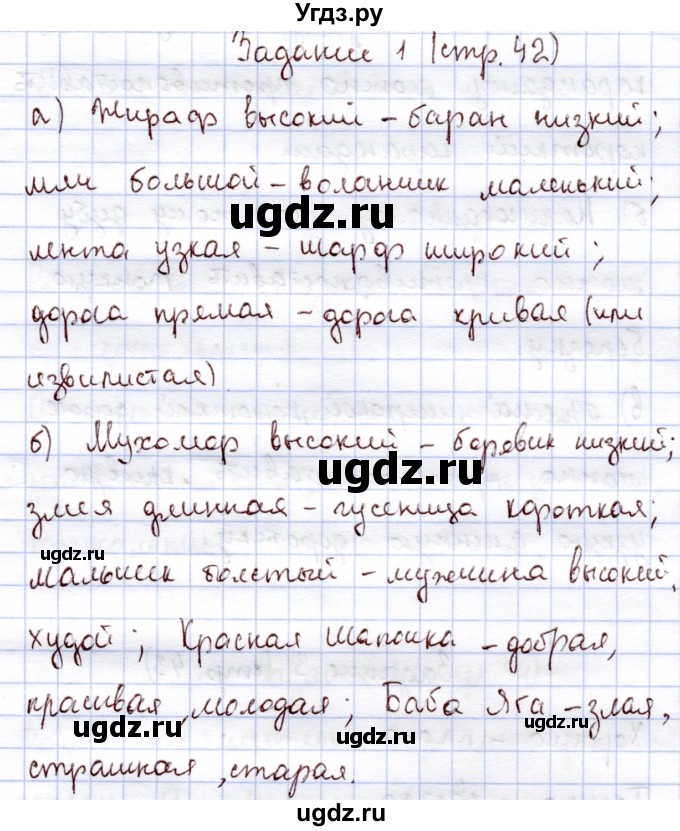 Угдз.ру
Задание 1 (стр. 42)
а) Жираф высокий – баран низкий;
мяч большой – воланчик маленький;
ugdz.ru
лента узкая – шарф широкий;
дорога прямая – дорога кривая (или
извилистая)
б) Мухомор высокий – боровик низкий;
ugdz.ru
змея длинная – гусеница короткая;
ugdz.ru ugdz.ru
мальчик толстый – мужчина высокий,
худой; Красная Шапочка – добрая,
красивая, молодая; Баба Яга – злая,
ugdz.ru ugdz.ru
страшная, старая.
ugdz.ru